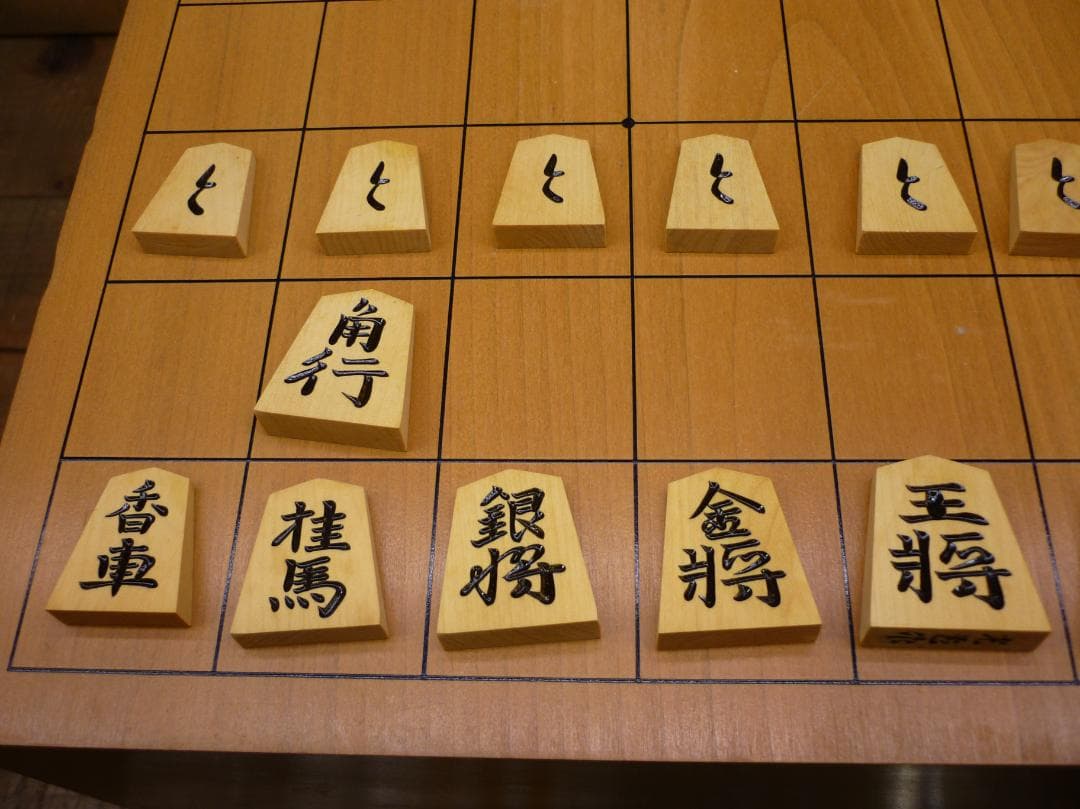 と と と と と と
角行
香車 桂馬 銀将 金將 王將